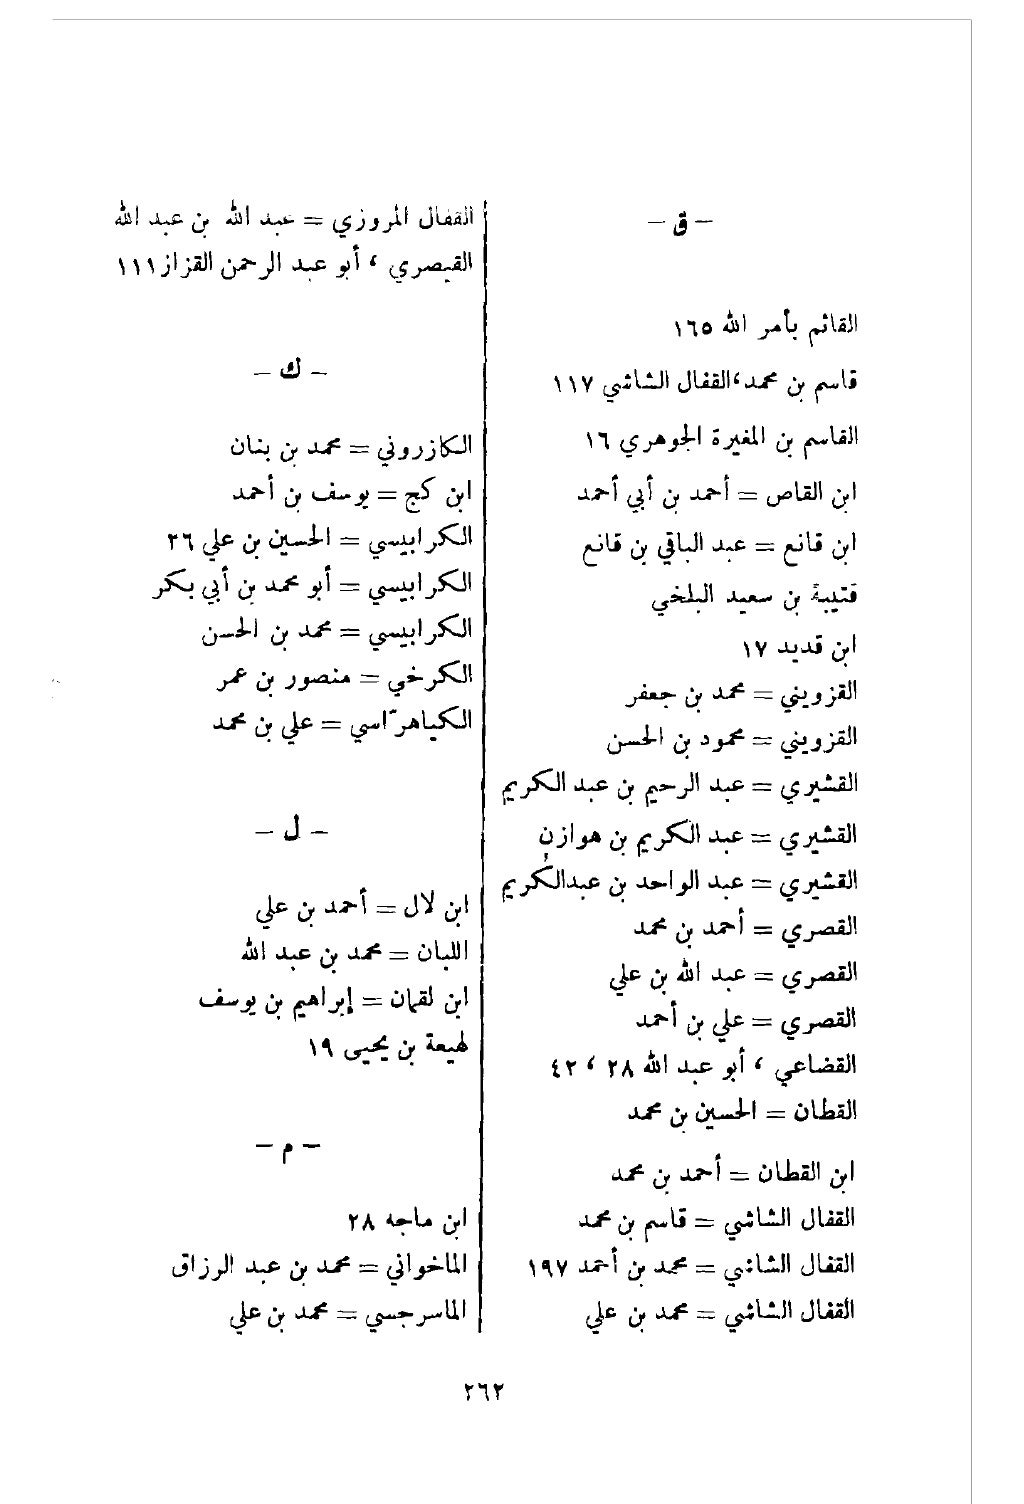 – ق –
القائم بأمر الله ١٦٥
قاسم بن محمد،القفال الشاشي ١١٧
القاسم بن المغيرة الجوهري ١٦
ابن القاص = أحمد بن أبي أحمد
ابن قانع = عبد الباقي بن قانع
قتيبة بن سعيد البلخي
ابن قديد ١٧
القزويني = محمد بن جعفر
القزويني = محمود بن الحسن
القشيري = عبد الرحيم بن عبد الكريم
القشيري = عبد الكريم بن هوازن
القشيري = عبد الواحد بن عبدالكريم
القصري = أحمد بن محمد
القصري = عبد الله بن علي
القصري = علي بن أحمد
القضاعي ، أبو عبد الله ٢٨ ، ٤٢
القطان = الحسين بن محمد
ابن القطان = أحمد بن محمد
القفال الشاشي = قاسم بن محمد
القفال الشاشي = محمد بن أحمد ١٩٧
القفال الشاشي = محمد بن علي
القفال المروزي = عبد الله بن عبد الله
القيصري ، أبو عبد الرحمن القزاز ١١١
– ك –
الكازروني = محمد بن بنان
ابن كج = يوسف بن أحمد
الكرابيسي = الحسين بن علي ٢٦
الكرابيسي = أبو محمد بن أبي بكر
الكرابيسي = محمد بن الحسن
الكرخي = منصور بن عمر
الكياهرّاسي = علي بن محمد
– ل –
ابن لال = أحمد بن علي
اللبان = محمد بن عبد الله
ابن لقمان = إبراهيم بن يوسف
لهيعة بن يحيى ١٩
– م –
ابن ماجه ٢٨
الماخواني = محمد بن عبد الرزاق
الماسرجسي = محمد بن علي
٢٦٢